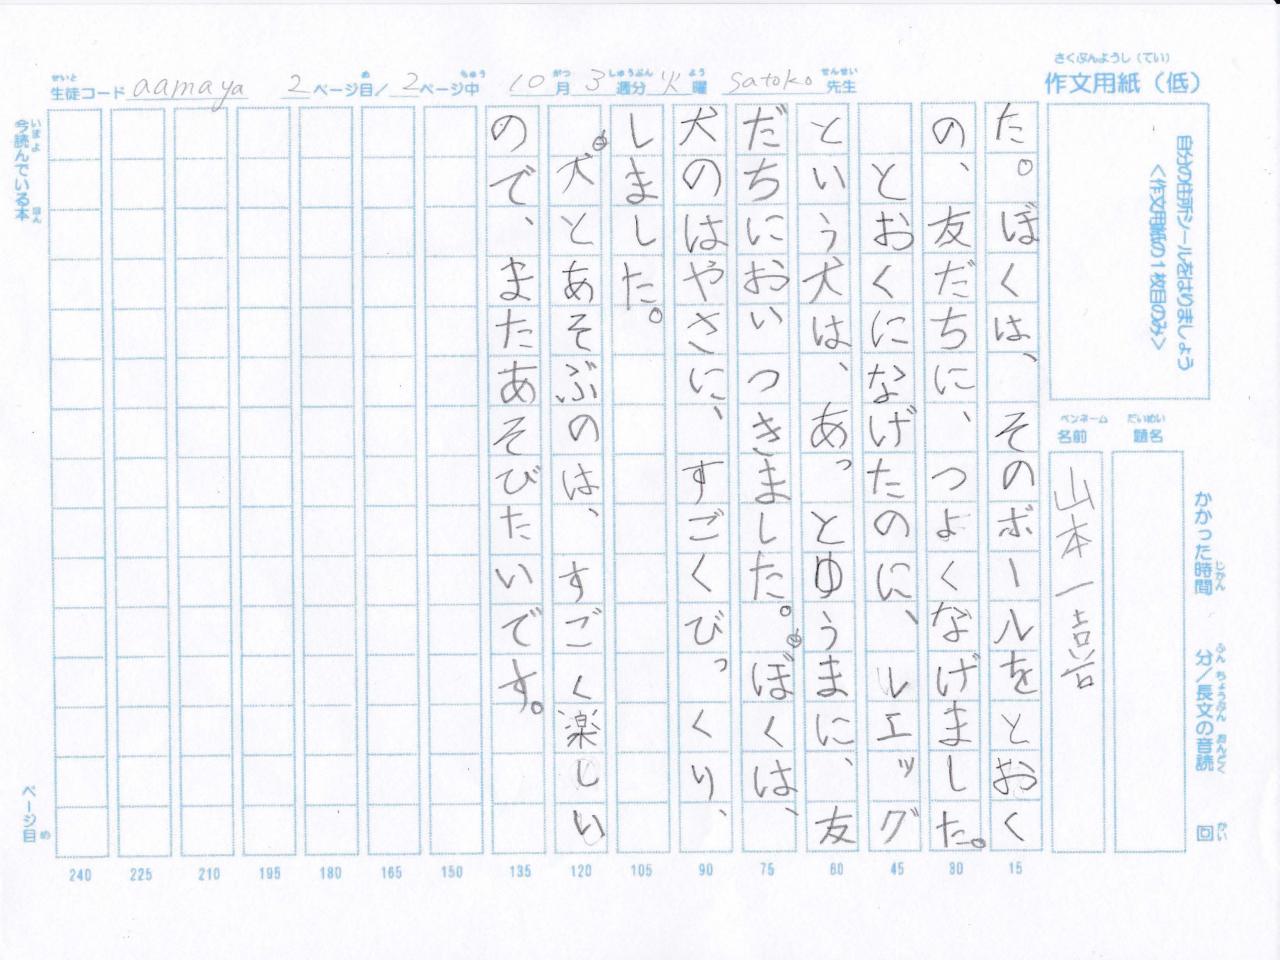 さくぶんようし(てい)
作文用紙(低)
せいと め ちゅう がつ しゅうぶん よう せんせい
生徒コード aamaya 2ページ目/2ページ中 10月3週分火曜 satoko先生
自分の住所シールをはりましょう
<作文用紙の1枚目のみ>
かかった時間 分/長文の音読 回
じかん ふん ちょうぶん おんどく かい
だいめい
題名
ペンネーム
名前
山本一喜
た。ぼくは、そのボールをとおく
の、友だちに、つよくなげました。
とおくになげたのに、ルエッグ
という犬は、あっとゆうまに、友
だちにおいつきました。ぼくは、
犬のはやさに、すごくびっくり、
しました。
犬とあそぶのは、すごく楽しい
ので、またあそびたいです。
いまよ ほん
今読んでいる本
ページ目
め
240 225 210 195 180 165 150 135 120 105 90 75 60 45 30 15